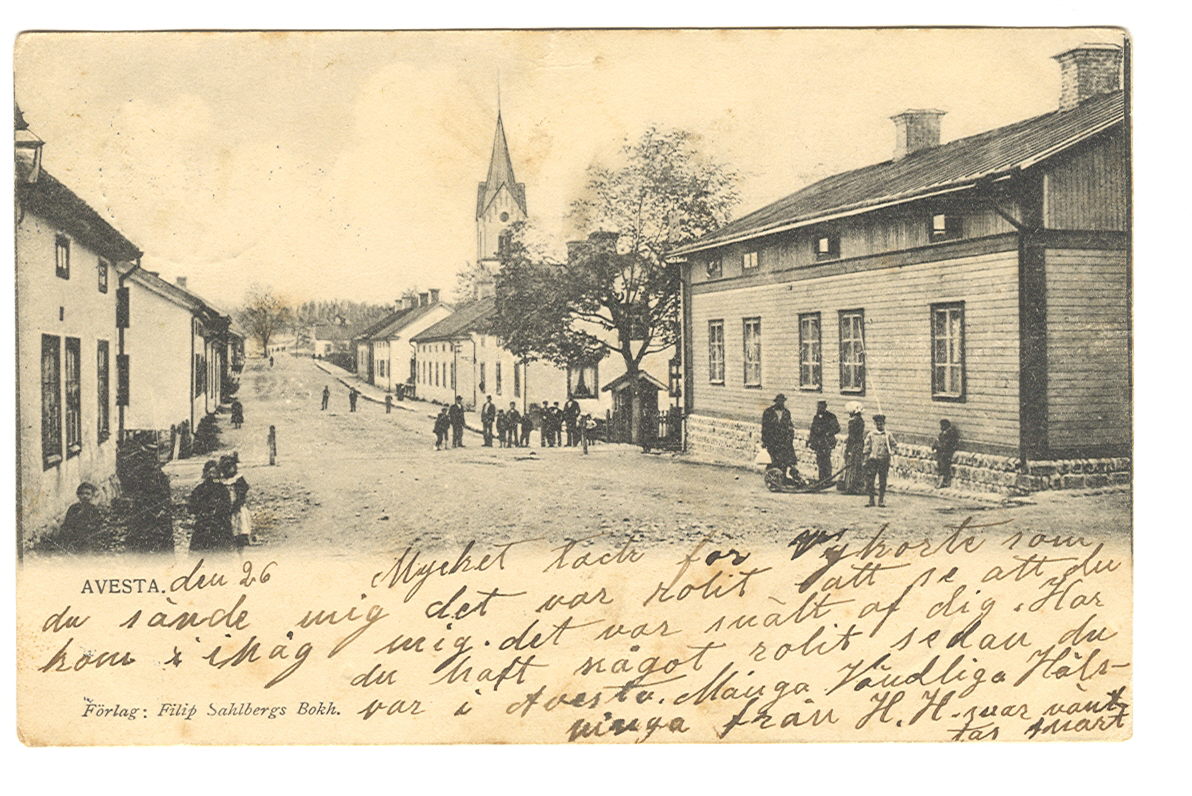 AVESTA. den 26 Mycket tack for Vykorte som
du sände mig det var rolit att se att du
kom i ihåg mig. det var snält af dig. Har
du haft något rolit sedan du
var i Avesta. Många Vändliga Häls-
ninga från H. H. svar vänt-
tas snart
Förlag: Filip Sahlbergs Bokh.